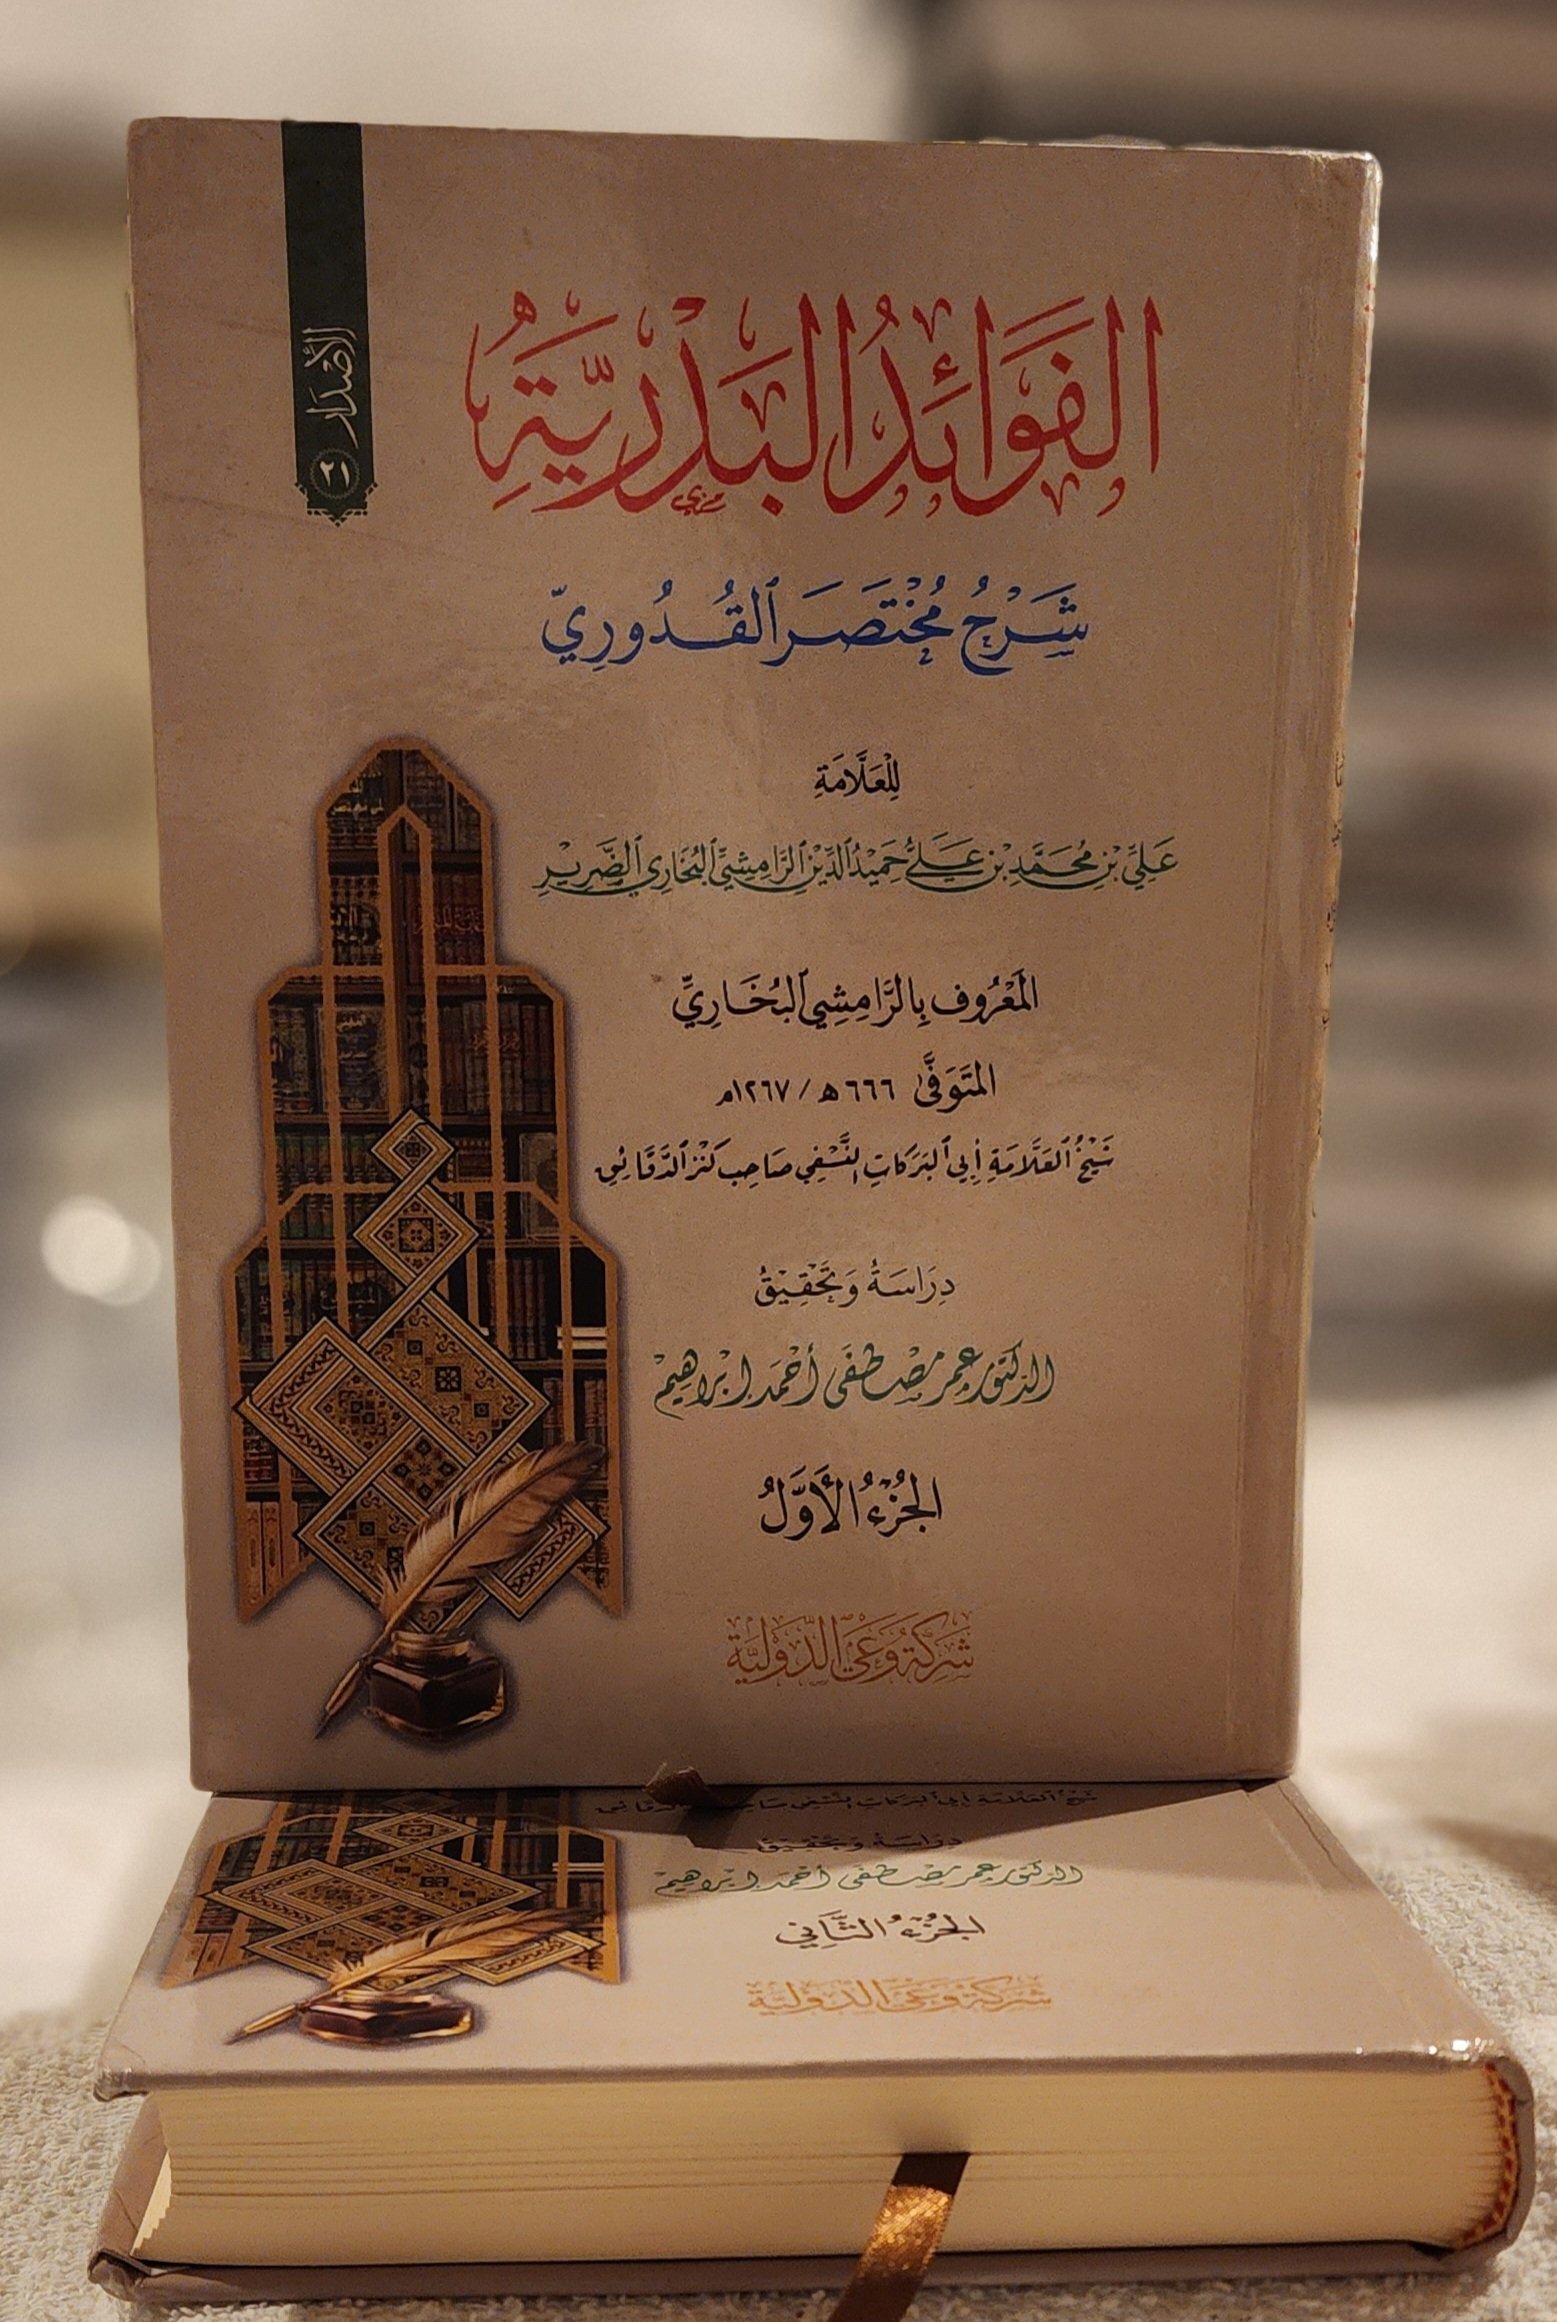 الأصدار
٢
الفَوَائِدُ البَدْرِيَّةُ
شَرْحُ مُخْتَصَرَ ٱلقُدُورِيّ
لِلْعَلَّامَةِ
عَلِيِّ بْنِ مُحَمَّدِ بْنِ عَلِيٍّ حَمِيْدُ ٱلدِّيْنِ ٱلرَّامِشِيِّ ٱلبُخَارِي ٱلضَّرِيْرِ
المَعْرُوف بِالرَّامِشِي ٱلبُخَارِيِّ
المتَوَفَّى ٦٦٦ه / ١٢٦٧م
شَيْخُ ٱلعَلَّامَةِ أَبِي ٱلبَرَكَاتِ ٱلنَّسْفِي صَاحِب كَنْز ٱلدَّقَائِقِ
دِرَاسَةُ وَتَحْقِيْقُ
الدكتور عمر مصطفى أحمد إبراهيم
الجُزْءُ الأَوَّلُ
شَرِكَةُ وَعْيِ الدَّوْلِيَّة
شَيْخُ ٱلعَلَّامَةِ أَبِي ٱلبَرَكَاتِ ٱلنَّسْفِي صَاحِب ٱلدَّقَائِقِ
دِرَاسَةُ وَتَحْقِيْقُ
الدكتور عمر مصطفى أحمد إبراهيم
الجُزْءُ الثَّانِي
شَرِكَةُ وَعْيِ الدَّوْلِيَّة